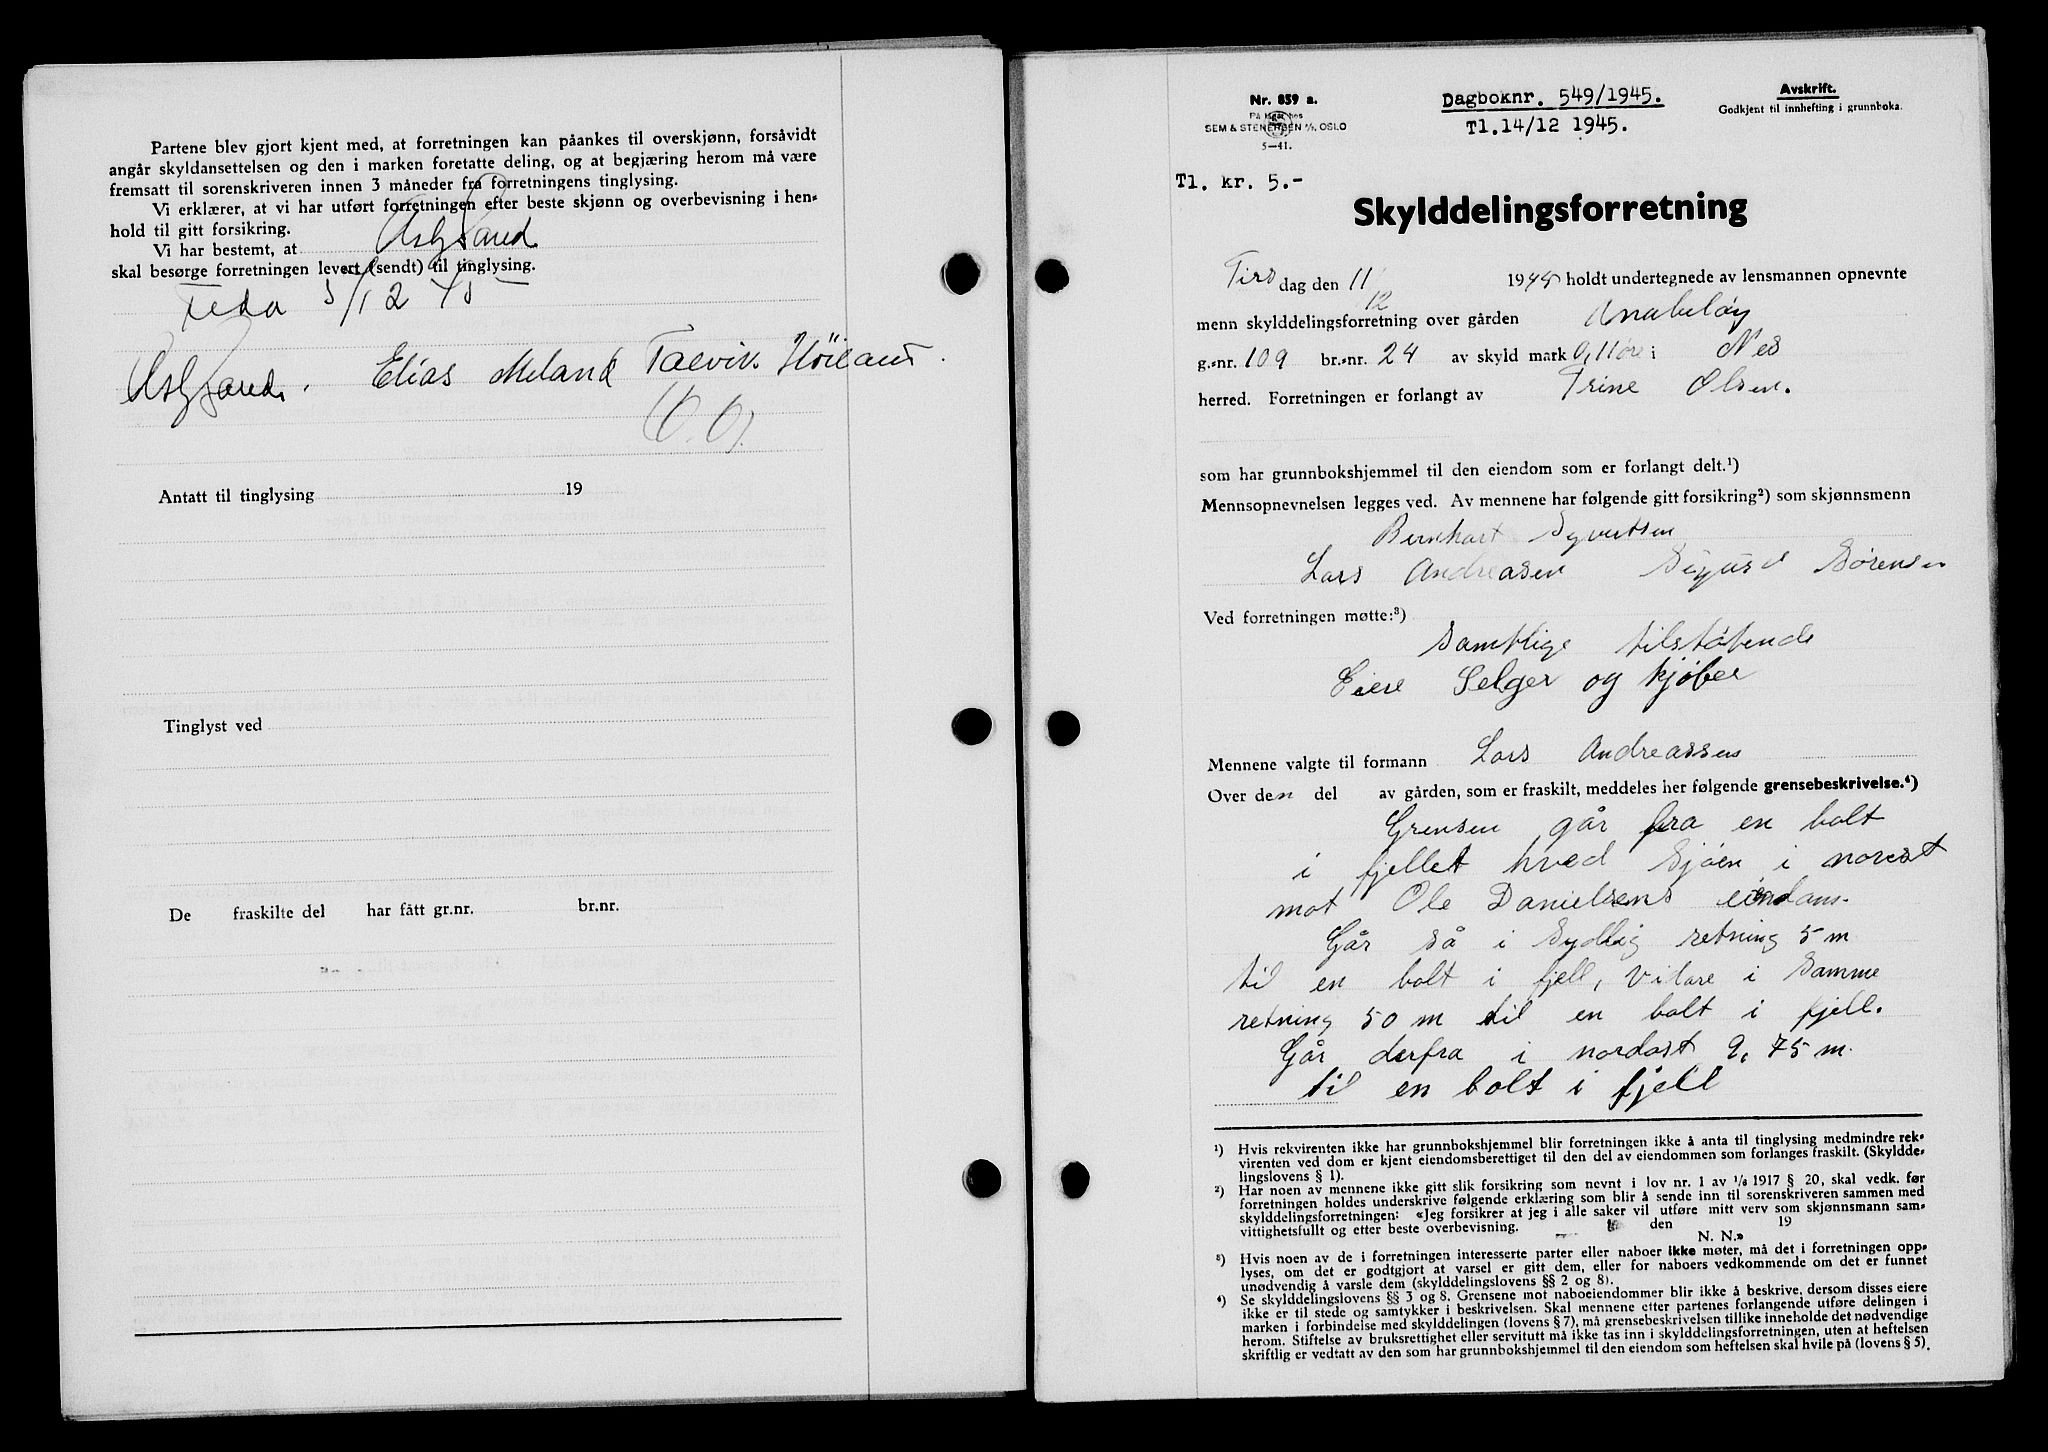 Partene blev gjort kjent med, at forretningen kan påankes til overskjønn, forsåvidt
angår skyldansettelsen og den i marken foretatte deling, og at begjæring herom må være
fremsatt til sorenskriveren innen 3 måneder fra forretningens tinglysing.
Vi erklærer, at vi har utført forretningen efter beste skjønn og overbevisning i hen-
hold til gitt forsikring.
Vi har bestemt, at
skal besørge forretningen levert (sendt) til tinglysing.
Feda 5/12 45
Elias Meland Taevik Höiland
Antatt til tinglysing 19
Tinglyst ved
De fraskilte del har fått gr.nr. br.nr.
Nr. 859 a.
På lager hos
SEM & STENERSEN A/S, OSLO
5—41.
Dagboknr. 549/1945.
Tl.14/12 1945.
Avskrift.
Godkjent til innhefting i grunnboka.
Tl. kr. 5.-
Skylddelingsforretning
Tirs dag den 11/12 1945 holdt undertegnede av lensmannen opnevnte
menn skylddelingsforretning over gården Anabeløy
g.-nr. 109 br.-nr. 24 av skyld mark 0,11 øre i Nes
herred. Forretningen er forlangt av Trine Olsen.
som har grunnbokshjemmel til den eiendom som er forlangt delt.¹)
Mennsopnevnelsen legges ved. Av mennene har følgende gitt forsikring²) som skjønnsmenn
Bernhart Syvertsen
Lars Andreasen Sigurd Sørensen
Ved forretningen møtte:³)
Samtlige tilstøtende
Eiere Selger og kjøber
Mennene valgte til formann Lars Andreassen
Over den del av gården, som er fraskilt, meddeles her følgende grensebeskrivelse.⁴)
Grensen går fra en bolt
i fjellet hved Sjøen i norest
mot Ole Danielsens eiendom.
Går så i Sydlig retning 5 m
til en bolt i fjell, vidare i Samme
retning 50 m til en bolt i fjell.
Går derfra i nordost 9,75 m.
til en bolt i fjell
¹) Hvis rekvirenten ikke har grunnbokshjemmel blir forretningen ikke å anta til tinglysing medmindre rek-
virenten ved dom er kjent eiendomsberettiget til den del av eiendommen som forlanges fraskilt. (Skyldde-
lingslovens § 1).
²) Har noen av mennene ikke gitt slik forsikring som nevnt i lov nr. 1 av 1/6 1917 § 20, skal vedk. før
forretningen holdes underskrive følgende erklæring som blir å sende inn til sorenskriveren sammen med
skylddelingsforretningen: «Jeg forsikrer at jeg i alle saker vil utføre mitt verv som skjønnsmann sam-
vittighetsfullt og efter beste overbevisning. den 19
N. N.»
³) Hvis noen av de i forretningen interesserte parter eller naboer ikke møter, må det i forretningen opp-
lyses, om det er godtgjort at varsel er gitt dem, eller for naboers vedkommende om det er funnet
unødvendig å varsle dem (skylddelingslovens §§ 2 og 8).
⁴) Se skylddelingslovens §§ 3 og 8. Grensene mot naboeiendommer blir ikke å beskrive, dersom disses eiere
ikke er til stede og samtykker i beskrivelsen. Skal mennene etter partenes forlangende utføre delingen i
marken i forbindelse med skylddelingen (lovens § 7), må grensebeskrivelsen tillike inneholde det nødvendige
herom. Stiftelse av bruksrettighet eller servitutt må ikke tas inn i skylddelingsforretningen, uten at heftelsen
skriftlig er vedtatt av den som har grunnbokshjemmel til den eiendom som heftelsen skal hvile på (lovens § 5).